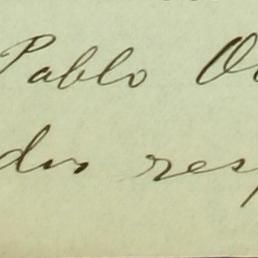 Pablo O
dis res